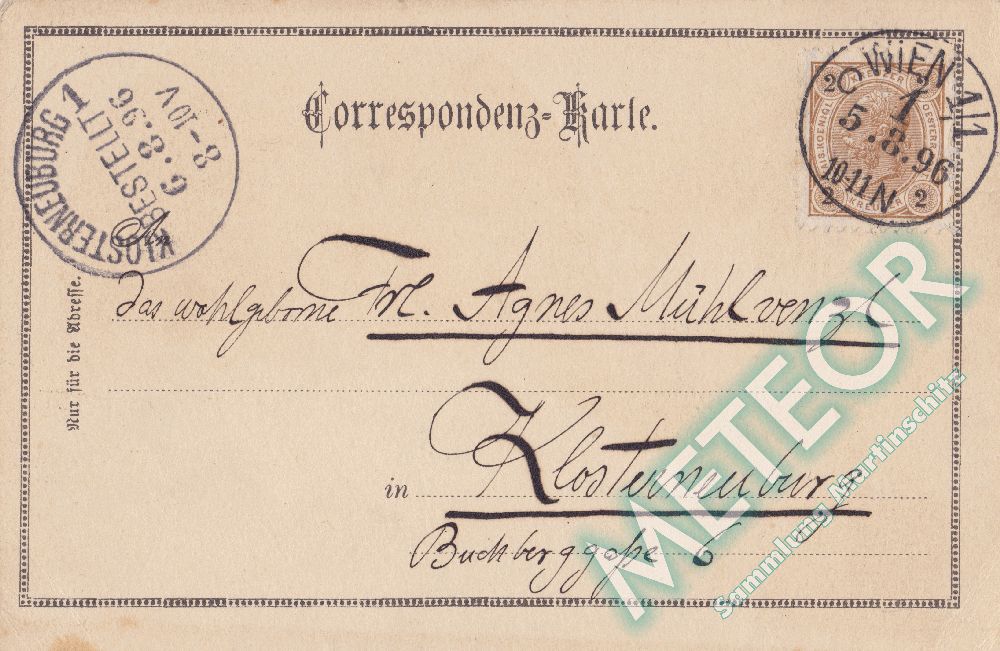 Correspondenz-Karte.
WIEN 1/1
1
5.8.96
10-11N
2 2
2 2
KREUZER
KLOSTERNEUBURG 1
BESTELLT
6.8.96
8-10V
An
das wohlgeborne Frl. Agnes Mühlvenzl
in Klosterneuburg
Buchberggaße 6
Nur für die Adresse.
METEOR
Sammlung Martinschitz